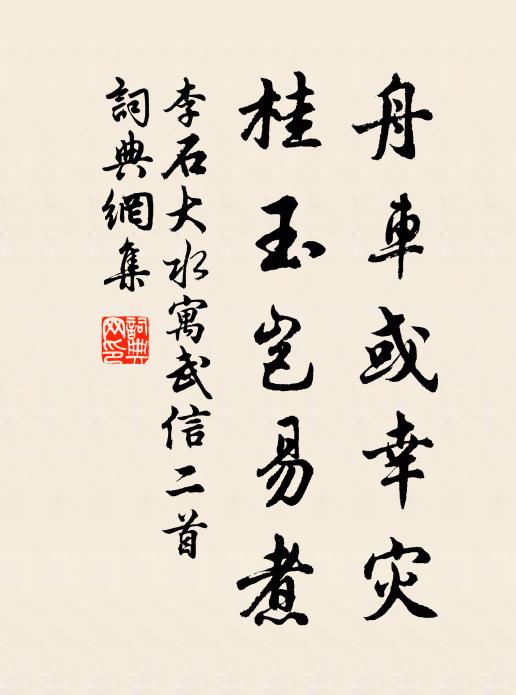 舟車或幸灾
桂玉岂易煮
李石大水寓武信二首
詞典網集
詞典
网印